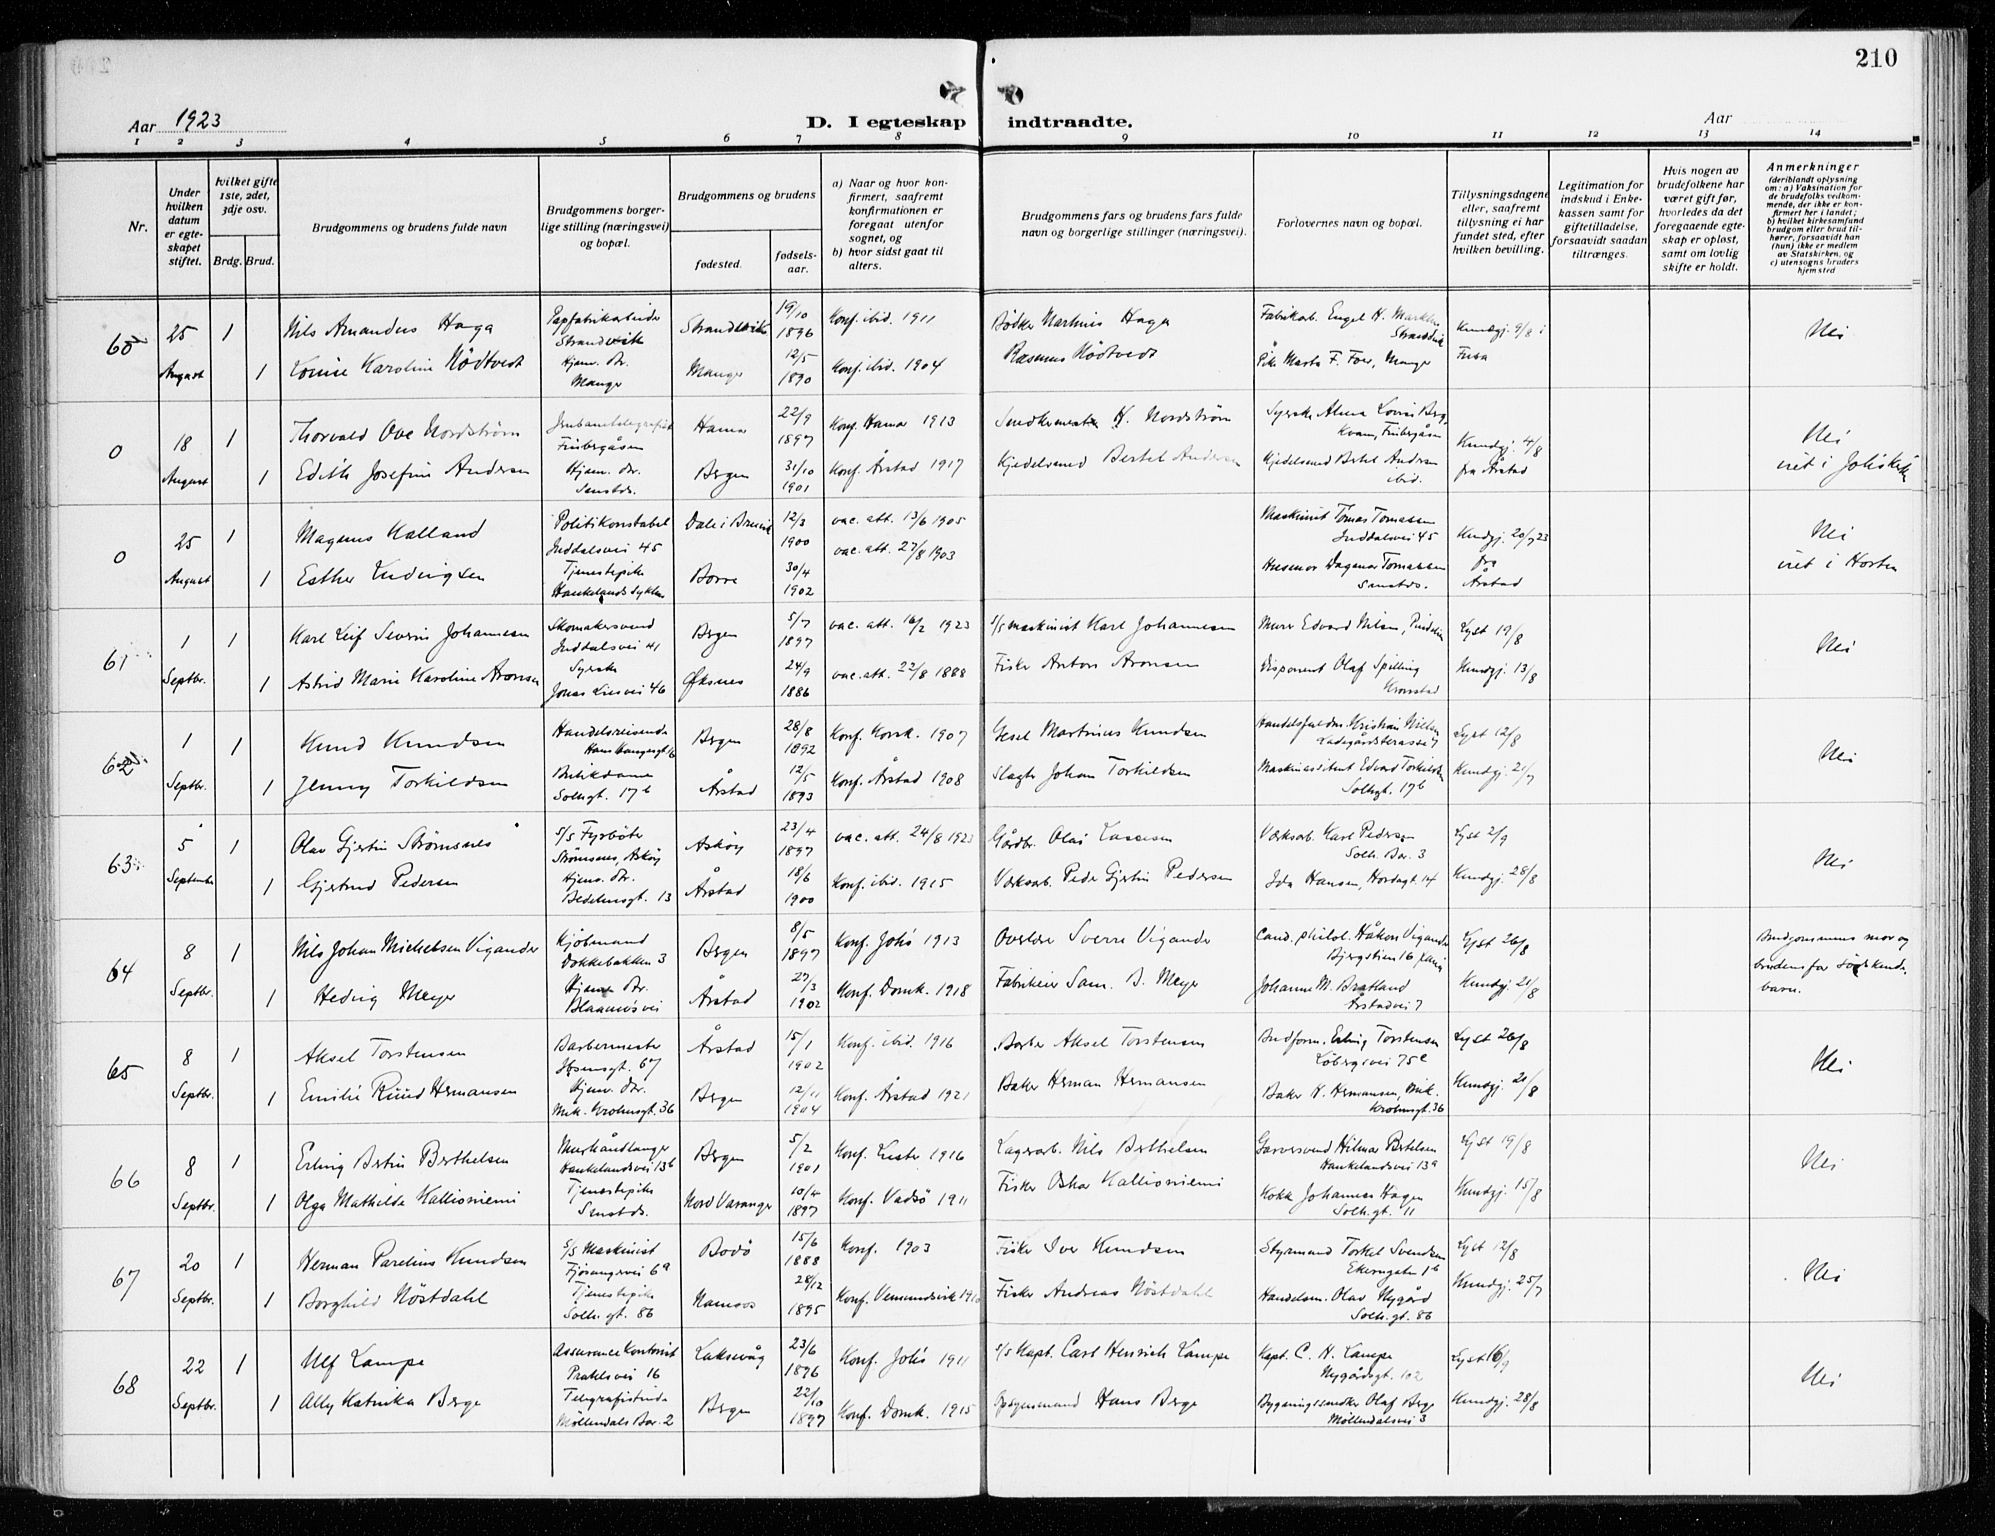 210
Aar 1923
D. Iegteskap indtraadte.
Aar
1 2 3 4 5 6 7 8 9 10 11 12 13 14
Nr.
Under hvilken datum er egteskapet stiftet.
hvilket gifte 1ste, 2det, 3dje osv.
Brdg. Brud.
Brudgommens og brudens fulde navn
Brudgommens borgerlige stilling (næringsvei) og bopæl.
Brudgommens og brudens
fødested.
fødselsaar.
a) Naar og hvor konfirmert, saafremt konfirmationen er foregaat utenfor sognet, og
b) hvor sidst gaat til alters.
Brudgommens fars og brudens fars fulde navn og borgerlige stillinger (næringsvei).
Forlovernes navn og bopæl.
Tillysningsdagene eller, saafremt tillysning ei har fundet sted, efter hvilken bevilling.
Legitimation for indskud i Enkekassen samt for giftetilladelse, forsaavidt saadan tiltrænges.
Hvis nogen av brudefolkene har været gift før, hvorledes da det foregaaende egteskap er opløst, samt om lovlig skifte er holdt.
Anmerkninger
(deriblandt oplysning om: a) Vaksination for de brudefolks vedkommende, der ikke er konfirmert her i landet; b) hvilket kirkesamfund brudgom eller brud tilhører, forsaavidt han (hun) ikke er medlem av Statskirken, og c) utensogns bruders hjemsted
60 25 1 Nils Amandus Haga Papfabrikarbeider Strandvik Strandvik 19/10 1896 Konf. ibid. 1911 Bødker Martinus Haga Fabrikarb. Engel H. Strandvik Kundgj. 9/8 i Nei
August 1 Louise Karoline Nødtvedt Hjem. Br. Manger Manger 12/5 1890 Konf. ibid. 1904 Rasmus Nødtvedt Pike Marta F. Foer, Manger Fusa
0 18 1 Thorvald Ove Nordstrøm Jernbanetelegrafist Finbergåsen Hamar 22/9 1897 Konf. Hamar 1913 H. Nordstrøm Syerske Alma Lovise Berg, Kvam, Finbergåsen Kundgj. 4/8 Nei
August 1 Edith Josefine Andersen Hjem. Br. Samstds. Bergen 31/10 1901 Konf. Årstad 1917 Kjedelsmed Bertel Andersen Kjedelsmed Bertel Andersen ibid. fra Årstad viet i Johskirke
0 25 1 Magnus Kalland Politikonstabel Inddalsvei 45 Dale i Bruvik 12/3 1900 vac. att. 13/6 1905 Maskinist Tomas Tomassen Inddalsvei 45 Kundgj. 20/7 23 Nei
August 1 Esther Ludvigsen Tjenestepike Haukelands Sykehus Borre 30/4 1902 vac. att. 27/8 1903 Husmor Dagmar Tomassen Samstds. fra Årstad viet i Horten
61 1 1 Karl Leif Severin Johannesen Skomakersvend Inddalsvei 41 Bergen 5/7 1897 vac. att. 16/2 1923 S/S maskinist Karl Johannesen Murer Edvard Nilsen, Lyst 19/8 Nei
Septbr. 1 Astrid Marie Karoline Aronsen Syerske Jonas Liesvei 46 Øksnes 24/9 1886 vac. att. 22/8 1888 Fisker Anton Aronsen Disponent Olaf Spilling Kronstad Kundgj. 13/8
62 1 1 Knud Knudsen Handelsreisende Bergen 28/8 1892 Konf. Korsk. 1907 Gesel Martinus Knudsen Handelsfuldm. Kristian Nielsen Ladegårdsterasse 7 Lyst 12/8 Nei
Septbr. 1 Jenny Torkildsen Butikdame Solhgt. 17b Årstad 12/5 1893 Konf. Årstad 1908 Slagter Johan Torkildsen Maskinassistent Edvard Torkildsen Solhgt. 17b Kundgj. 21/7
63 5 1 Olav Gjertin Strømsnes S/S Fyrbøter Strømsnes, Askøy Askøy 23/4 1897 vac. att. 24/8 1923 Gårdbr. Olai Lassesen Værksarb. Karl Pedersen Solh. Bar. 3 Lyst 2/9 Nei
September 1 Gjertrud Pedersen Hjem. Br. 13 Årstad 18/6 1900 Konf. ibid. 1915 Værksarb. Peder Gjertin Pedersen Ida Hansen, Hordagt. 14 Kundgj. 28/8
64 8 1 Nils Johan Michelsen Vigander Kjøbmand Dokkebakken 3 Bergen 8/5 1897 Konf. Johs 1913 Overlærer Sverre Vigander Cand. philol. Håkon Vigander Bjergstien 16 Lyst 26/8 Brudgommens mor og brudens far søskendebarn.
Septbr. 1 Hedvig Meyer Hjem. Br. Blaamøsvei Årstad 27/3 1902 Konf. Domk. 1918 Fabrikeier Sam. B. Meyer Johanne M. Bratland Årstadvei 7 Kundgj. 21/8
65 8 1 Aksel Torstensen Barbermester Ibsensgt. 67 Årstad 15/1 1902 Konf. ibid. 1916 Barber Aksel Torstensen Budform. Erling Torstensen Løbergsvei 75c Lyst 26/8 Nei
Septbr. 1 Emilie Ruud Hermansen Hjem. Br. Mik. Krohnsgt. 36 Bergen 12/11 1904 Konf. Årstad 1921 Baker Herman Hermansen Baker H. Hermansen, Mik. Krohnsgt. 36 Kundgj. 21/8
66 8 1 Erling Bertin Berthelsen Murhåndlanger Haukelandsvei 13b Bergen 5/2 1901 Konf. Luster 1916 Lagerarb. Nils Berthelsen Garversvend Hilmar Bertelsen Haukelandsvei 13a Lyst 19/8 Nei
Septbr. 1 Olga Mathilde Kallioniemi Tjenestepike Samstds. Nord Varanger 10/4 1897 Konf. Vadsø 1911 Fisker Oskar Kallioniemi Kokk Johannes Hagen Solh. gt. 11 Kundgj. 15/8
67 20 1 Herman Parelius Knudsen S/S Maskinist Fjøsangervei 6a Bodø 15/6 1888 Konf. 1903 Fisker Iver Knudsen Styrmand Torkel Svendsen Ekerngaten 1b Lyst 12/8 Nei
Septbr. 1 Borghild Nøstdahl Tjenestepike Solh. gt. 86 Namsos 28/12 1895 Konf. Vemundvik 1910 Fisker Andreas Nøstdahl Handelsm. Olav Nygård Solh. gt. 86 Kundgj. 25/7
68 22 1 Ulf Lampe Assurance Kontorist Prahlsvei 16 Laksevåg 23/6 1896 Konf. Johs 1911 S/S Kapt. Carl Henrich Lampe Kapt. C. H. Lampe Nygårdsgt. 102 Lyst 16/9 Nei
Septbr. 1 Ally Katinka Berge Telegrafistinde Møllendals Bar. 2 Bergen 22/10 1897 Konf. Domk. 1915 Opsynsmand Hans Berge Bygningssnedker Olaf Berge Møllendalsvei 3 Kundgj. 28/8